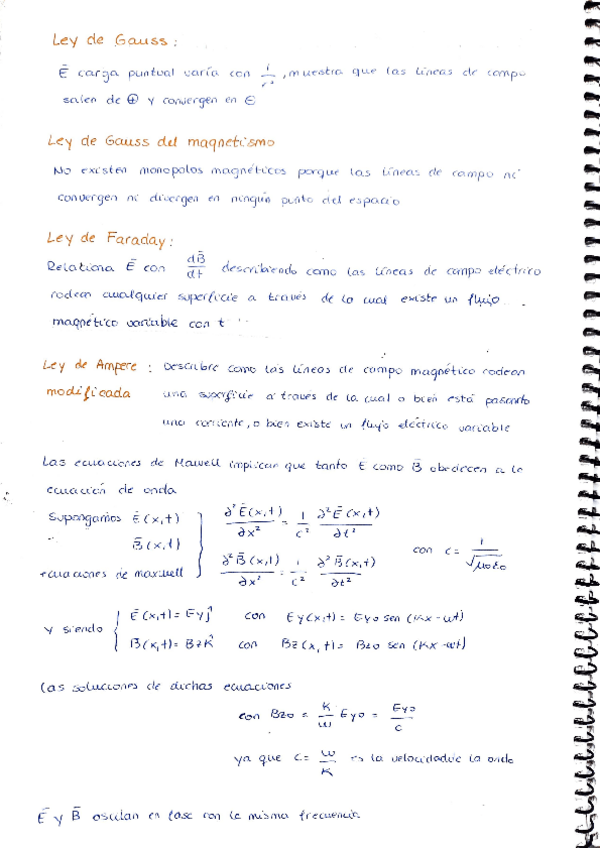 Ley de Gauss:
Ē carga puntual varía con 1/r², muestra que las líneas de campo
salen de ⊕ y convergen en ⊖
Ley de Gauss del magnetismo
No existen monopolos magnéticos porque las líneas de campo ni
convergen ni divergen en ningún punto del espacio
Ley de Faraday:
Relaciona Ē con dB̄/dt describiendo como las líneas de campo eléctrico
rodean cualquier superficie a través de la cual existe un flujo
magnético variable con t
Ley de Ampere modificada: Describe como las líneas de campo magnético rodean
una superficie a través de la cual o bien está pasando
una corriente, o bien existe un flujo eléctrico variable
Las ecuaciones de Maxwell implican que tanto Ē como B̄ obedecen a la
ecuación de onda
Supongamos Ē(x,t) ∂²Ē(x,t)/∂x² = 1/c² ∂²Ē(x,t)/∂t²
B̄(x,t) con c = 1/√μ₀ε₀
+ecuaciones de maxwell ∂²B̄(x,t)/∂x² = 1/c² ∂²B̄(x,t)/∂t²
y siendo Ē(x,t) = Ey ĵ con Ey(x,t) = Eyo sen (Kx - ωt)
B̄(x,t) = Bz K̂ con Bz(x,t) = Bzo sen (Kx - ωt)
las soluciones de dichas ecuaciones
con Bzo = K/ω Eyo = Eyo/c
ya que c = ω/K es la velocidad de la onda
Ē y B̄ oscilan en fase con la misma frecuencia